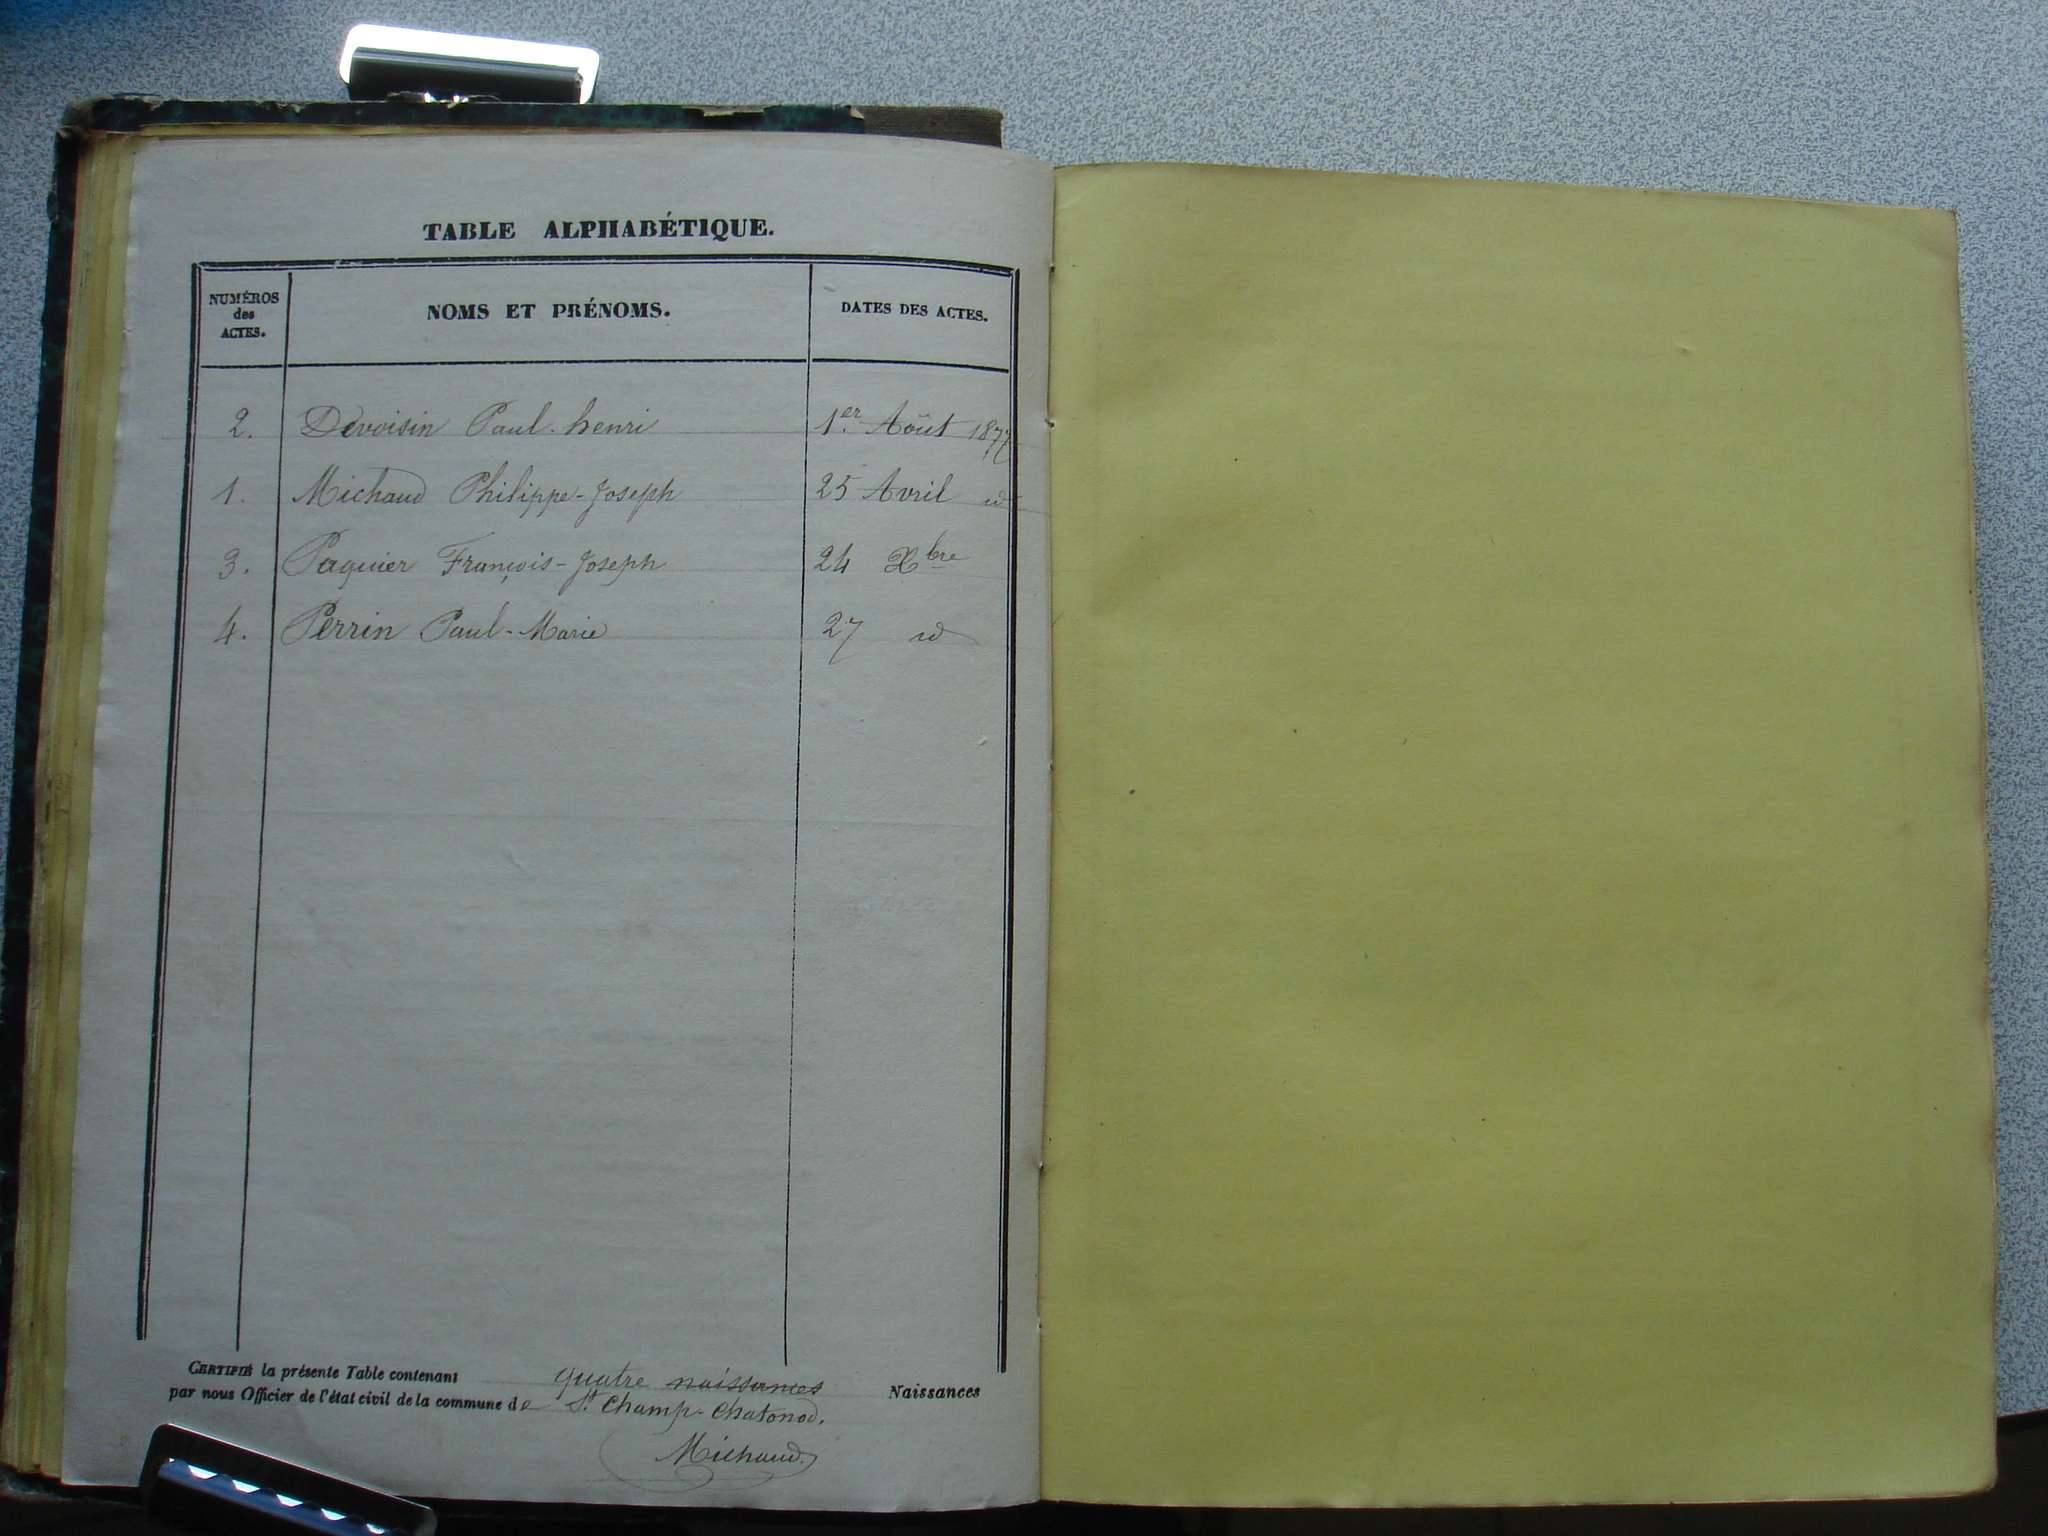 TABLE ALPHABÉTIQUE.
NUMÉROS
des
ACTES.
NOMS ET PRÉNOMS.
DATES DES ACTES.
2. Devoisin Paul-henri 1er Août 1877
1. Michaud Philippe-Joseph 25 Avril id
3. Paquier François-Joseph 24 Xbre
4. Perrin Paul-Marie 27 id
CERTIFIÉ la présente Table contenant quatre naissances Naissances
par nous Officier de l'état civil de la commune de St Champ-Chatonod.
Michaud